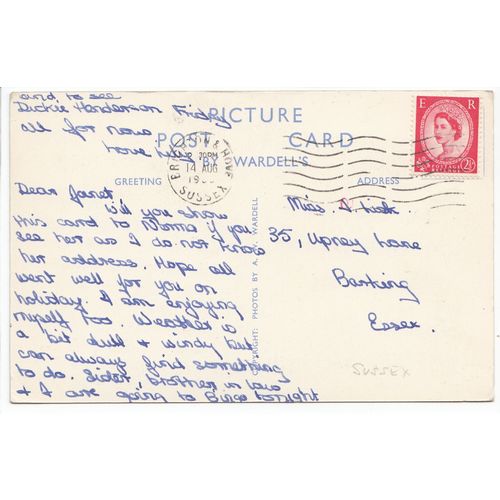 and to see
Dickie Henderson Friday
all for now
love
PICTURE
POST CARD
BY WARDELL'S
GREETING
ADDRESS
E R
POSTAGE
2½
BRIGHTON & HOVE
14 AUG
19
SUSSEX
Dear Janet
Will you show
this card to Norma if you
see her as I do not know
her address. Hope all
went well for you on
holiday. I am enjoying
myself too. Weather is
a bit dull & windy but
can always find something
to do. Sister, brother in law
& I are going to Bingo tonight
COPYRIGHT: PHOTOS BY A. W. WARDELL
Miss J. Lisk.
35, Upney Lane
Barking
Essex.
SUSSEX